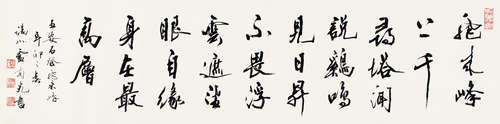 飛來峰
上千
尋塔聞
說鷄鳴
見日昇
不畏浮
雲遮望
眼自緣
身在最
高層
王安石登飛來峰
辛卯春
書